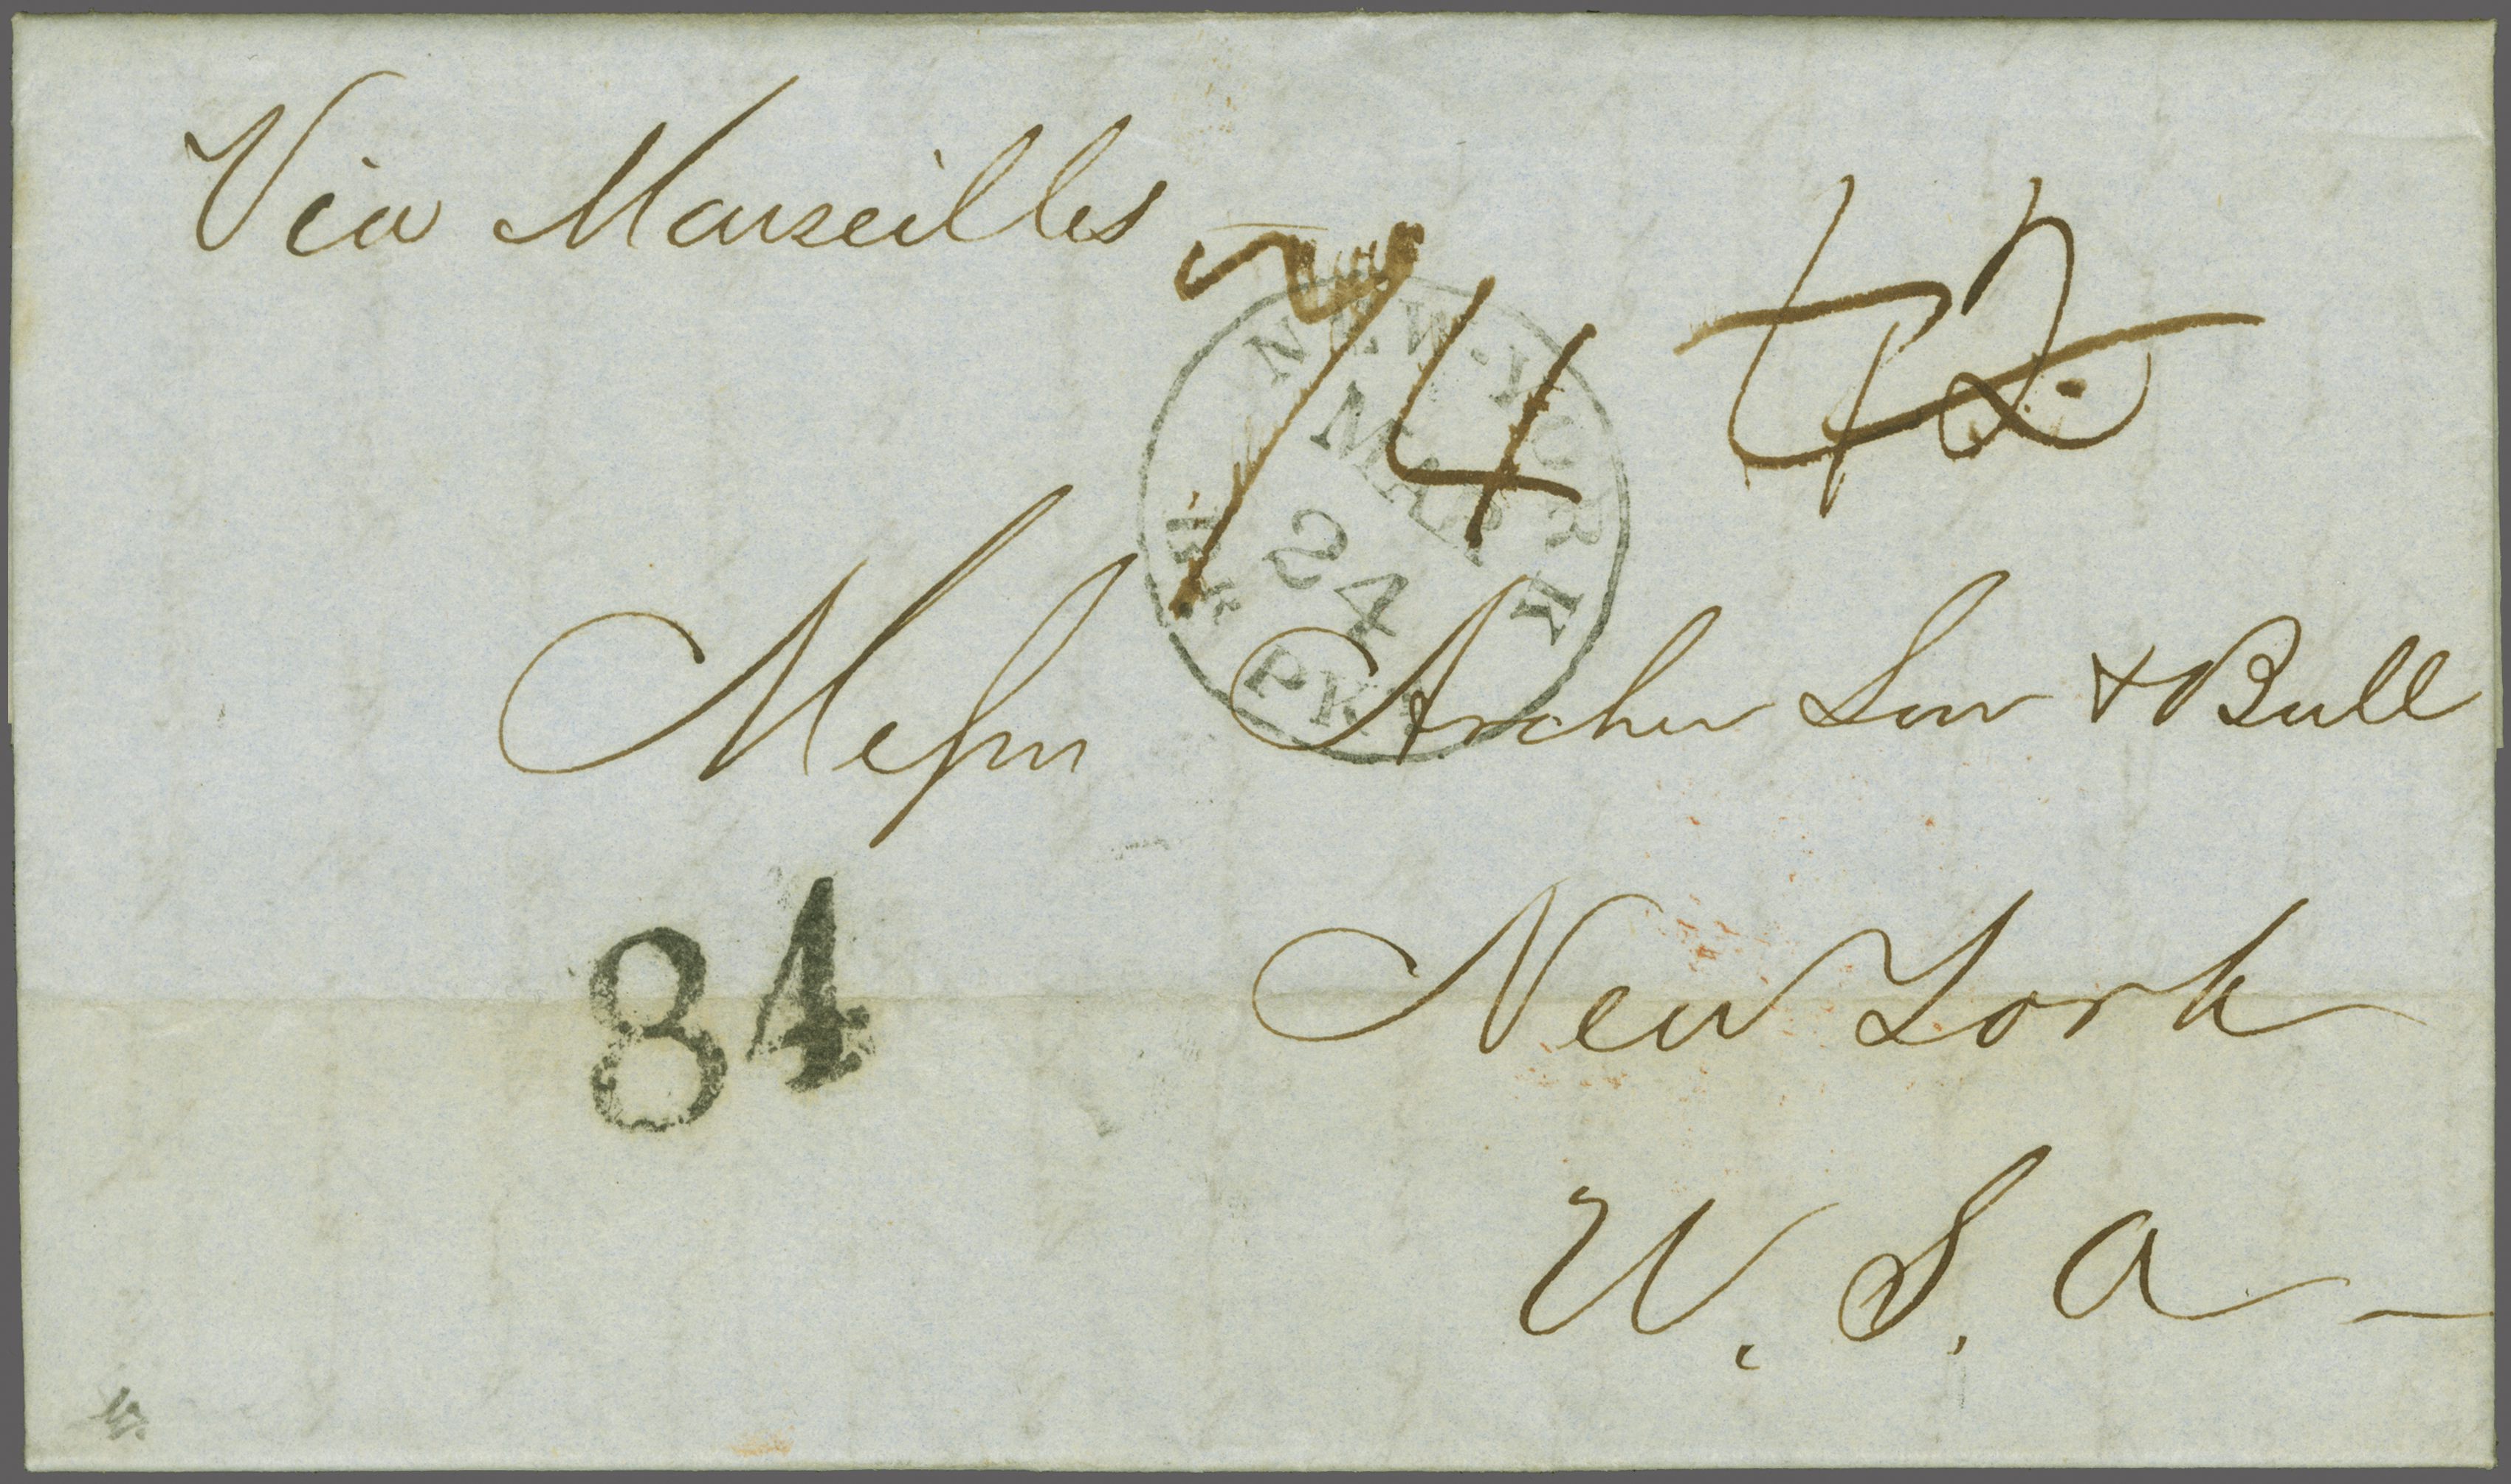 Via Marseilles
74
NEW-YORK
MAR
24
AM. PKT
Messrs Archer Low & Bull
84
New York
U. S. A